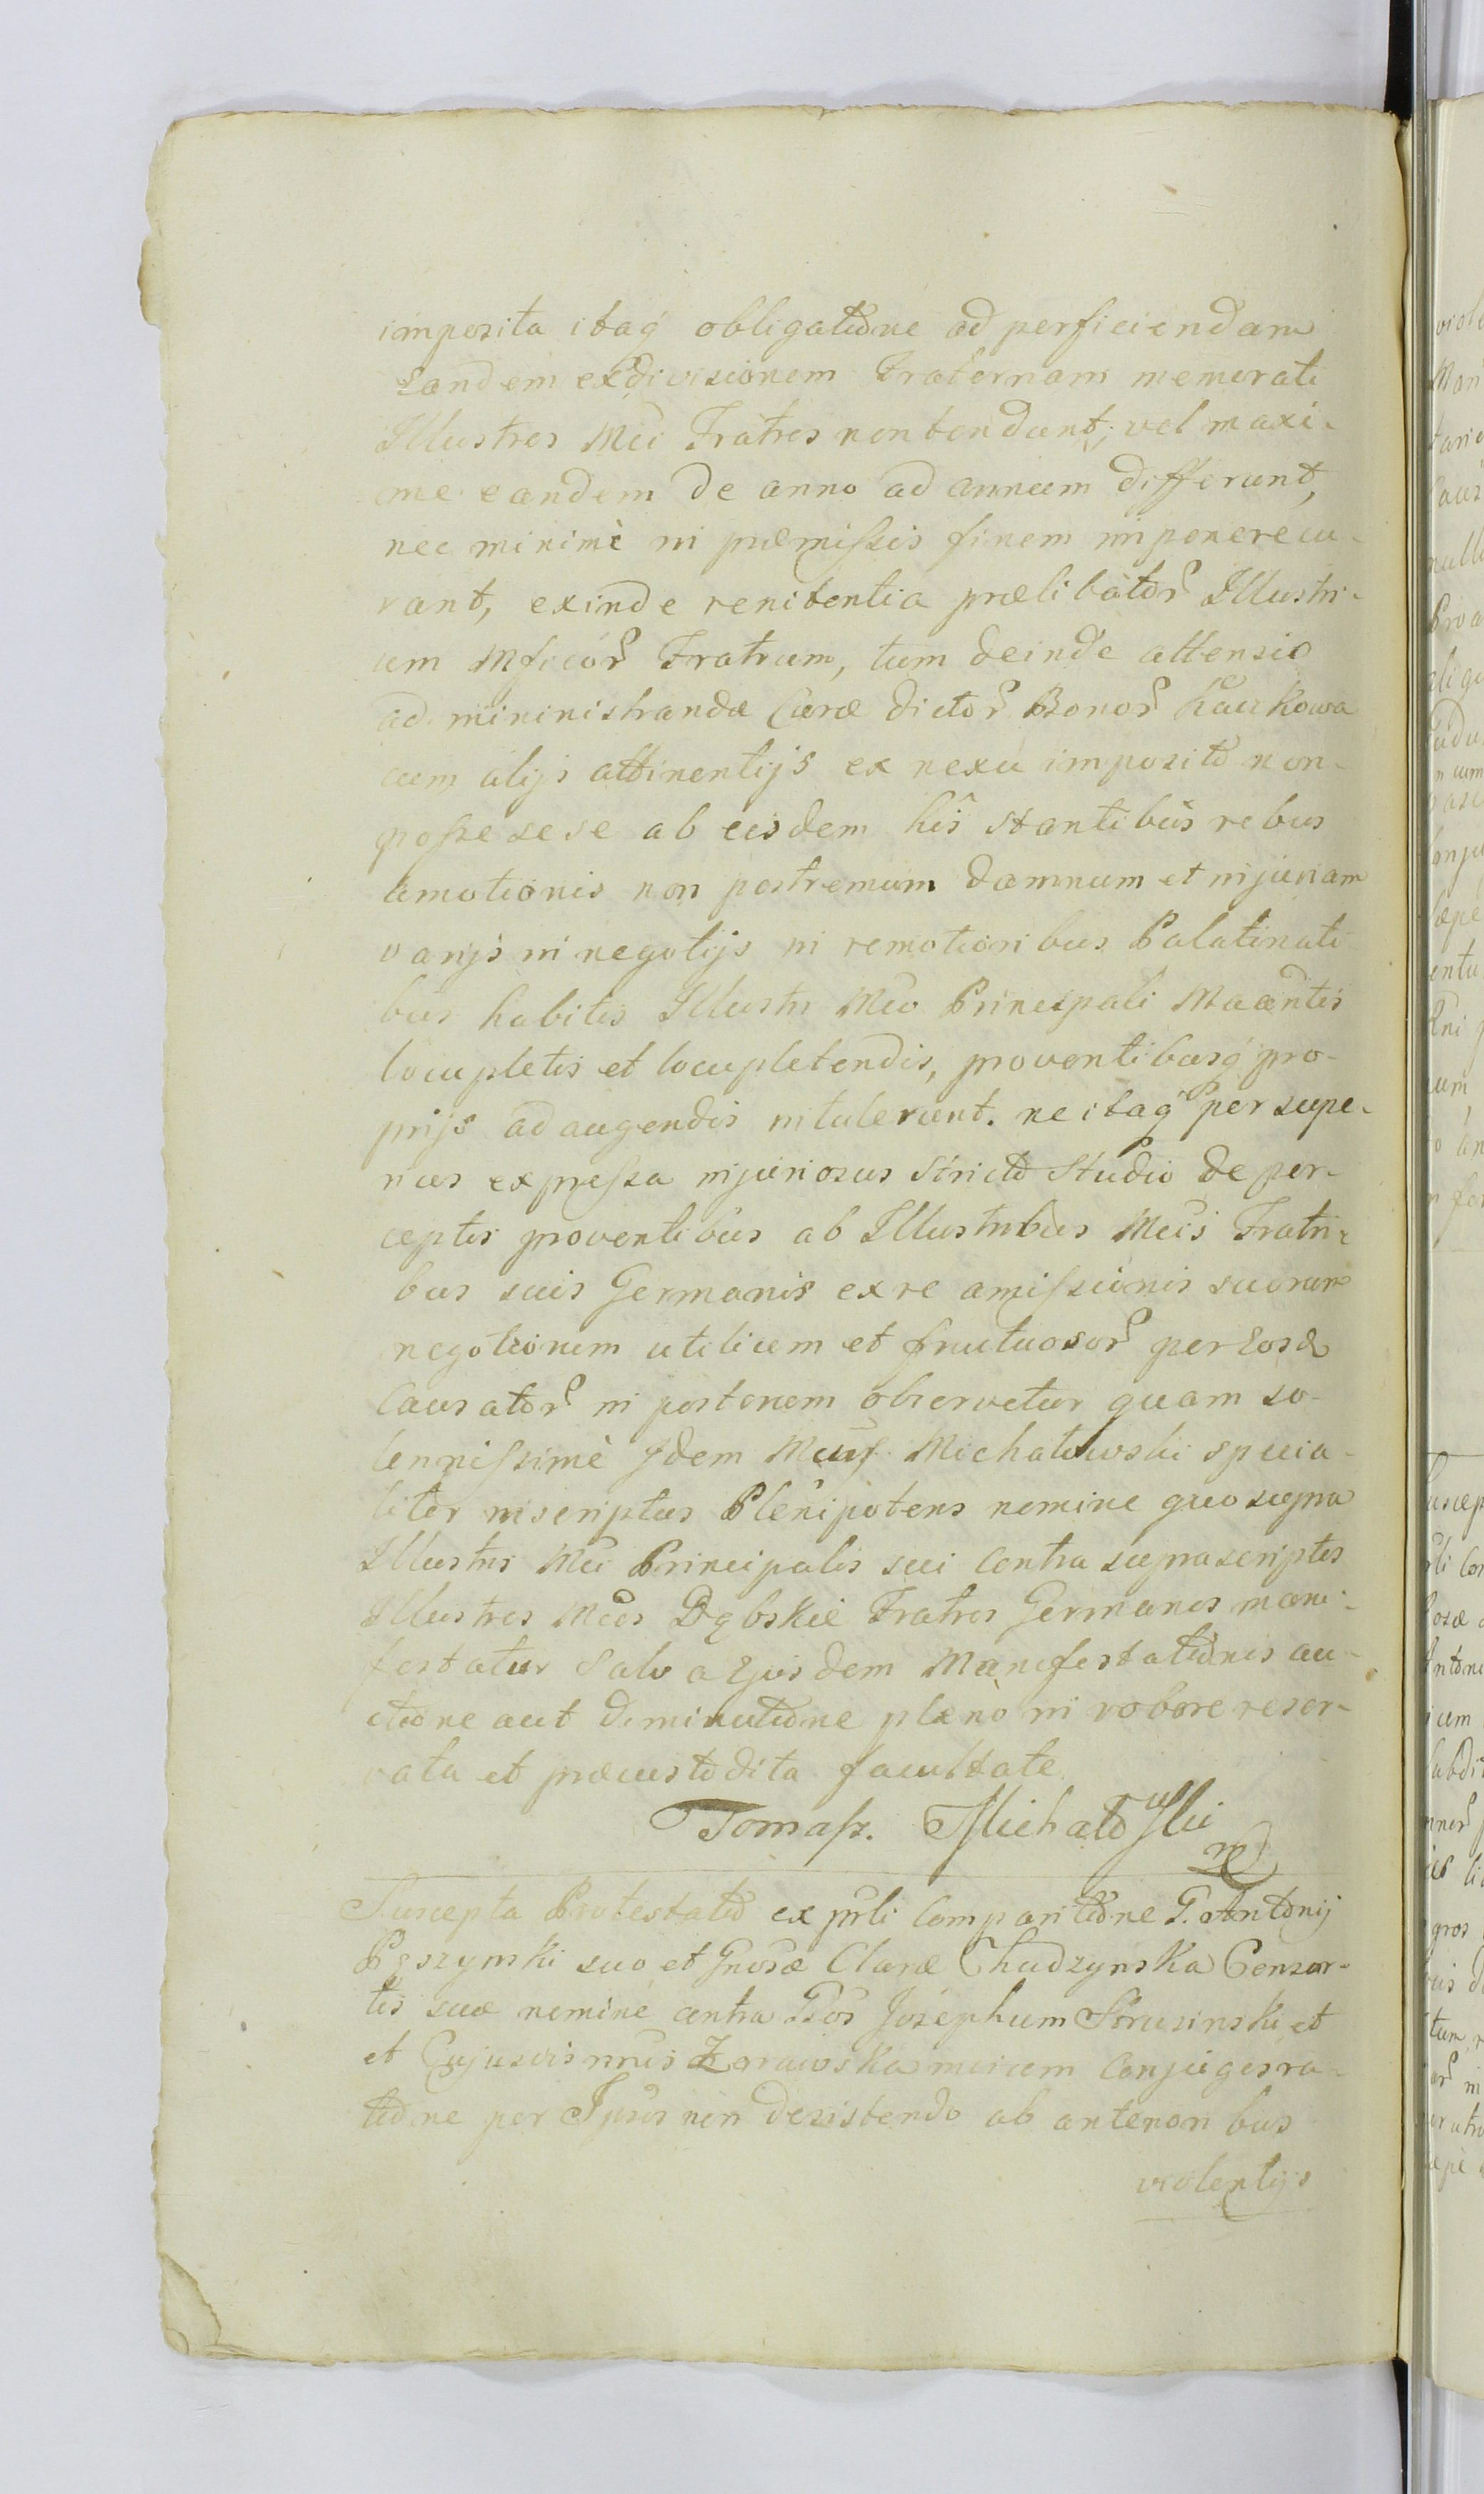 imposita itaq́ obligatione ad perficiendam
eandem exdivisionem Fraternam memorati
Illustres Mci Fratres non tendunt; vel maxi-
me eandem de anno ad annum differunt,
nec minimè in præmissis finem imponere cu-
rant, exinde renitentia prælibator Illustri-
um Mficor Fratrum, tum deinde attensio
administrandæ Curæ dictor Bonor
cum alijs attinentijs ex nexu imposito non-
posse sese ab eisdem his stantibus rebus
amotionis non postremum damnum et injuriam
varijs in negotijs in remotioribus Palatinati-
bus habitis Illustri Mco Principali
locupletis et locupletendis, proventibusq́ pro-
prijs ad augendis intulerunt. ne itaq́ per supe-
rius expressa injuriosus stricto Studio de per-
ceptis proventibus ab Illustribus Mcis Fratri-
bus suis Germanis ex re amissionis suorum
negotiorum utilium et fructuosor per Eosd
causator in posterum observetur quam so-
lennissimè Idem Michalowski specia-
liter inscriptus Plenipotens nomine quo supra
Illustris Mci Principalis sui contra suprascriptos
Illustres Mcos Dąbskie Fratres Germanos mani-
festatur Salva Ejusdem Manifestationis au-
ctione aut diminutione pleno in robore reser-
vata et præcustodita facultate
Tomasz. Michałowski
mp
Suscepta Protestatio ex prli comparitione G. Antonij
Pęszynski suo et Gnosæ Claræ Chudzynska Consor-
tis suæ nomine contra Gsos Josephum Strusinski et
et Cujusvis nnis Zorawska invicem Conjuges ra-
tione per Ipsos non desistendo ab anterioribus
violentijs